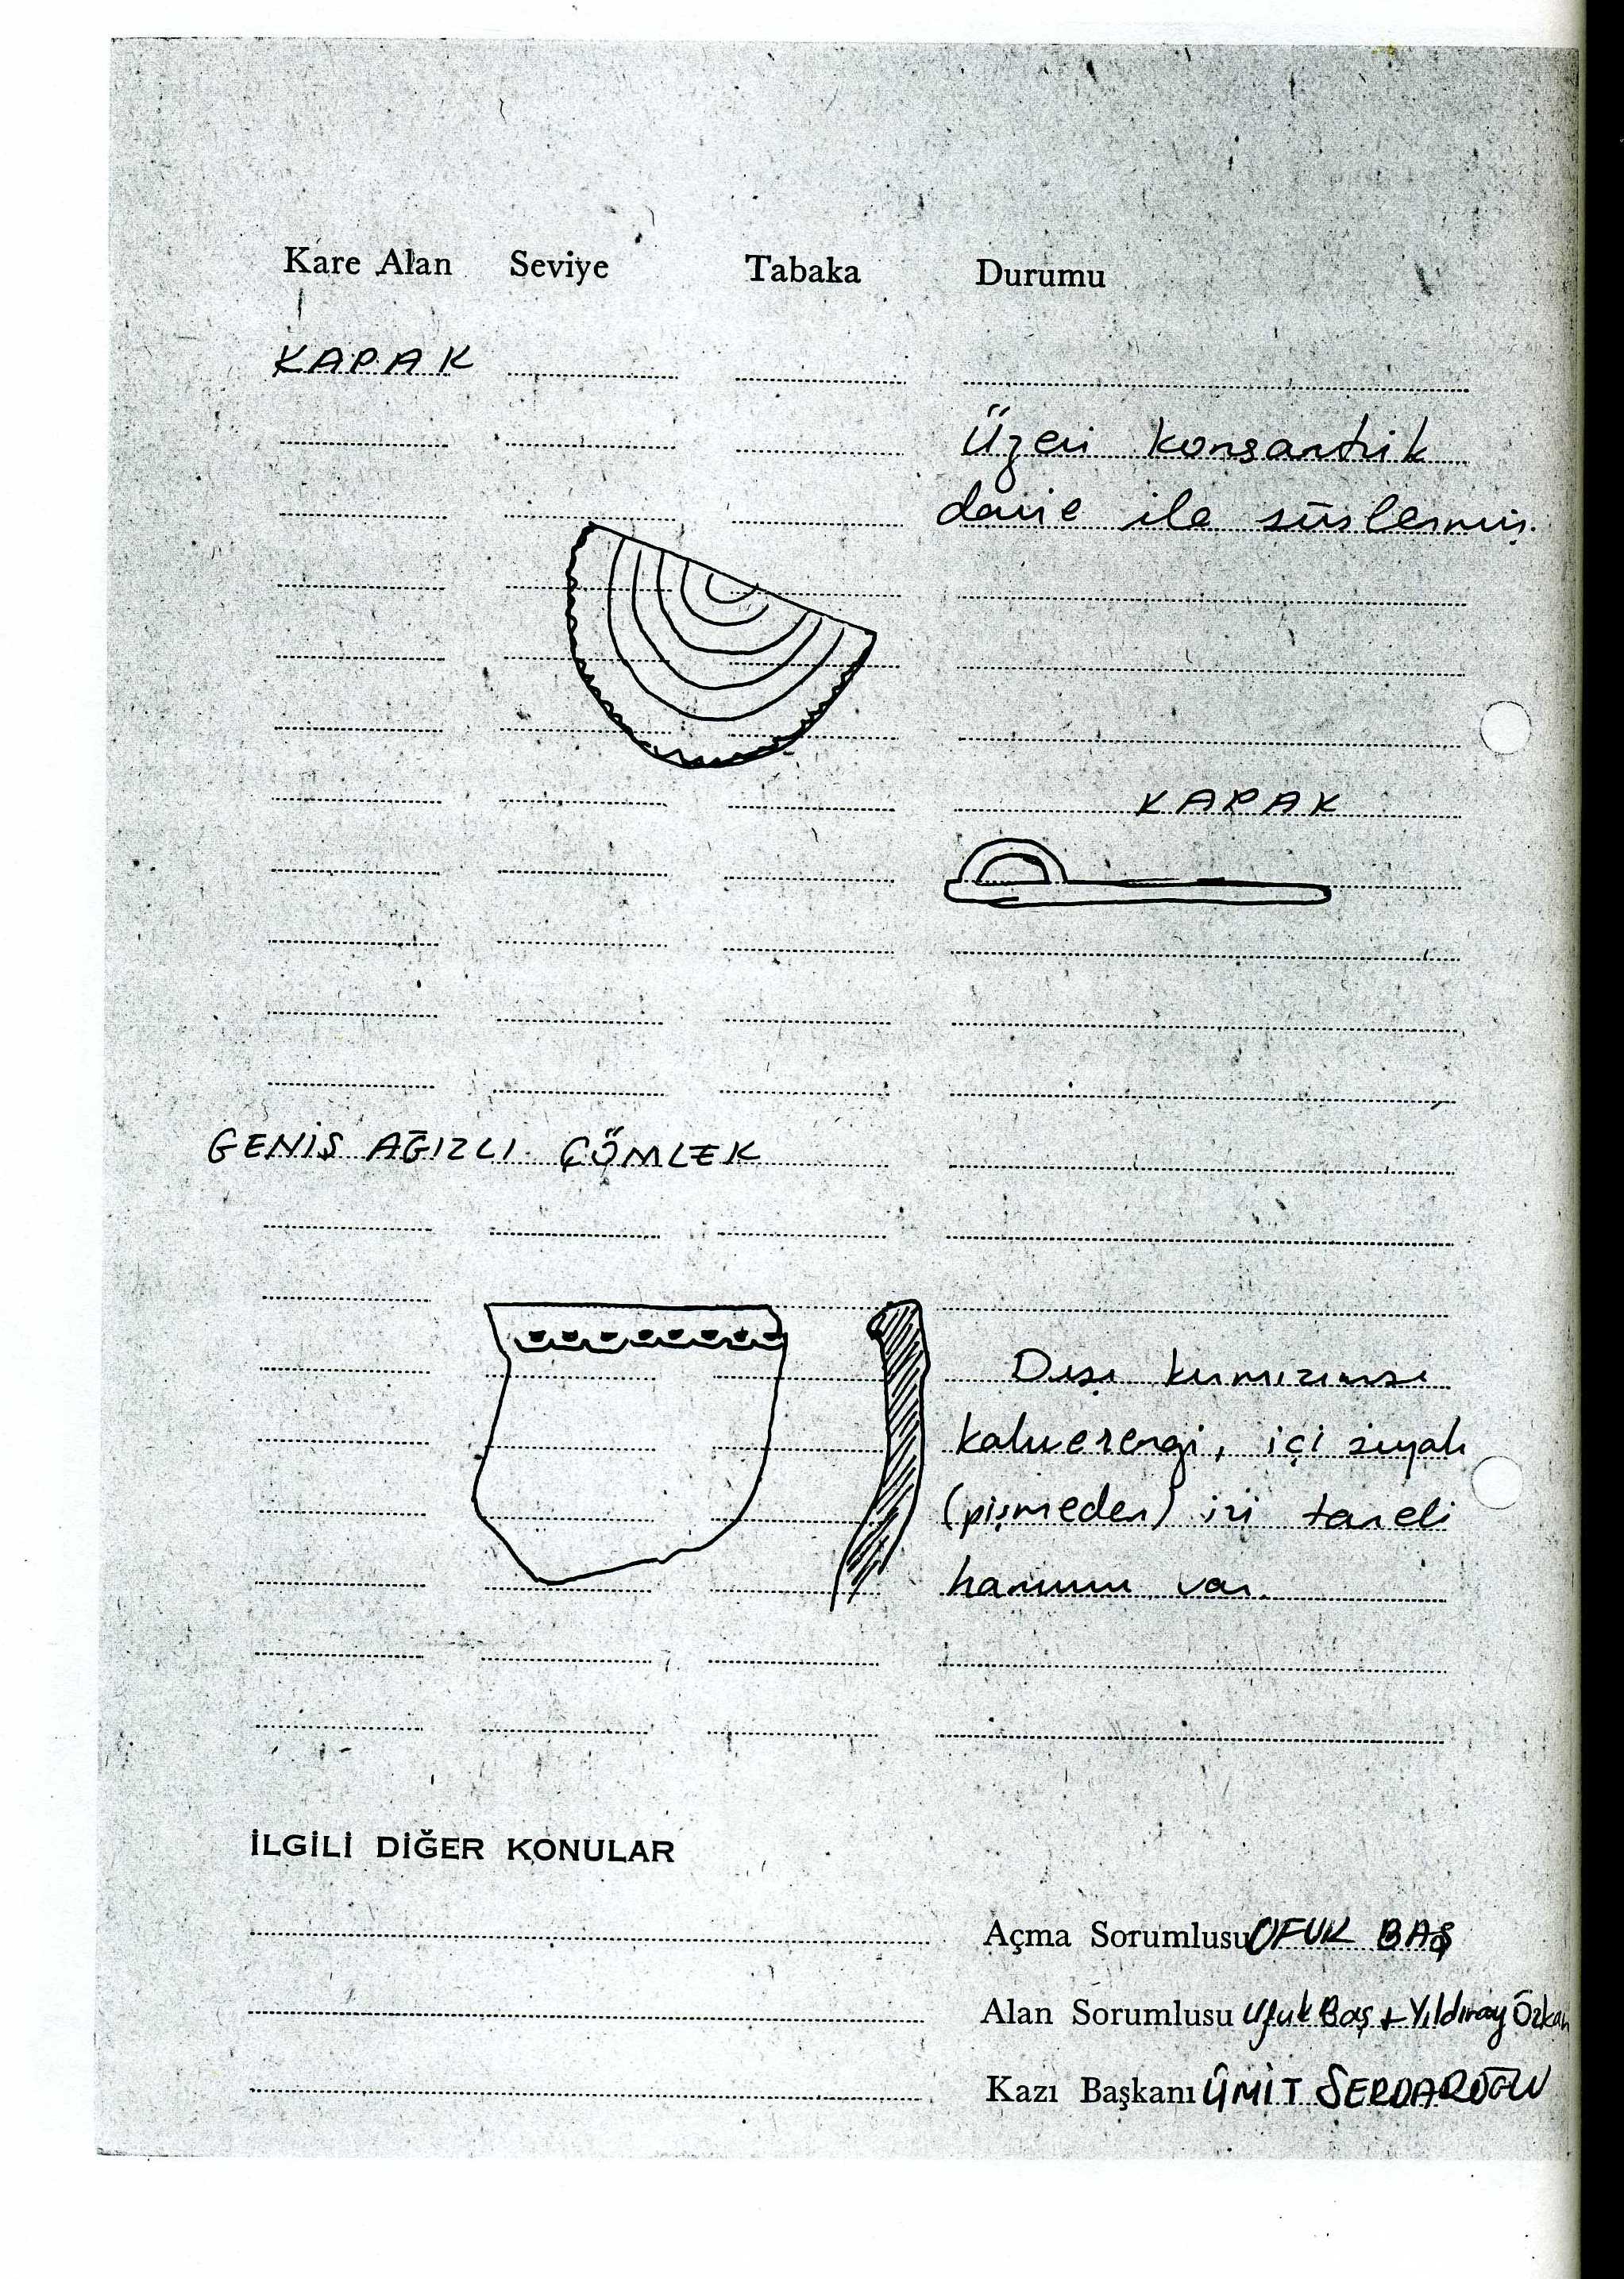 Kare Alan Seviye Tabaka Durumu
KAPAK
Üzeri konsantrik
daire ile süslenmiş.
KAPAK
GENİŞ AĞIZLI ÇÖMLEK
Dışı kırmızımsı
kahverengi, içi siyah
(pişmeden) iri taneli
hamuru var.
İLGİLİ DİĞER KONULAR
Açma Sorumlusu UFUK BAŞ
Alan Sorumlusu Ufuk Baş + Yıldıray Özkan
Kazı Başkanı ÜMİT SERDAROĞLU